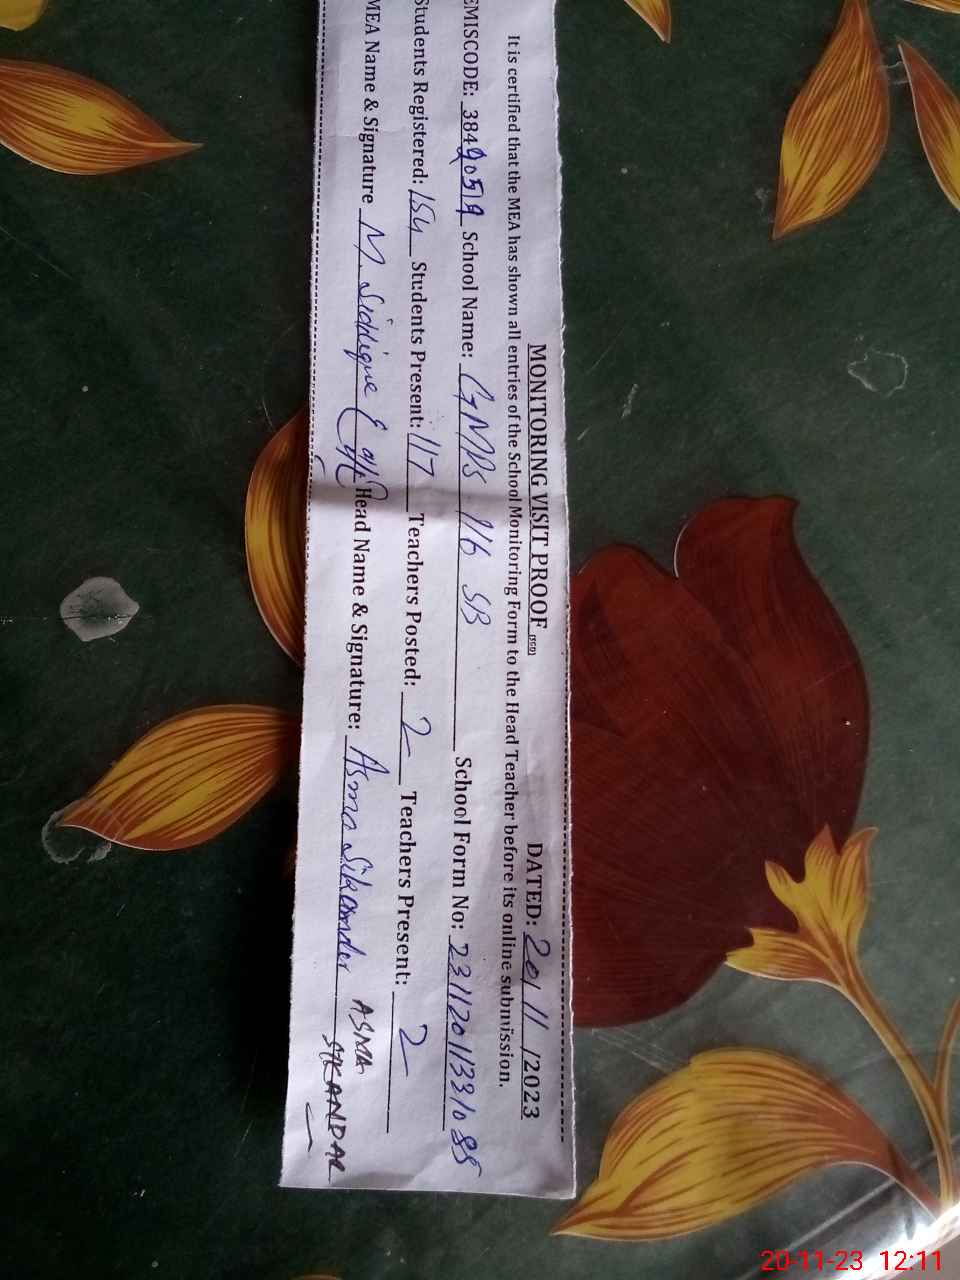 MONITORING VISIT PROOF (SED) DATED: 20/11/2023
It is certified that the MEA has shown all entries of the School Monitoring Form to the Head Teacher before its online submission.
EMISCODE: 38490519 School Name: GMPS 116 SB School Form No: 23112011331085
Students Registered: 154 Students Present: 117 Teachers Posted: 2 Teachers Present: 2
MEA Name & Signature M. Siddique Head Name & Signature: Asma Sikander ASMA
SIKANDAR
20-11-23 12:11